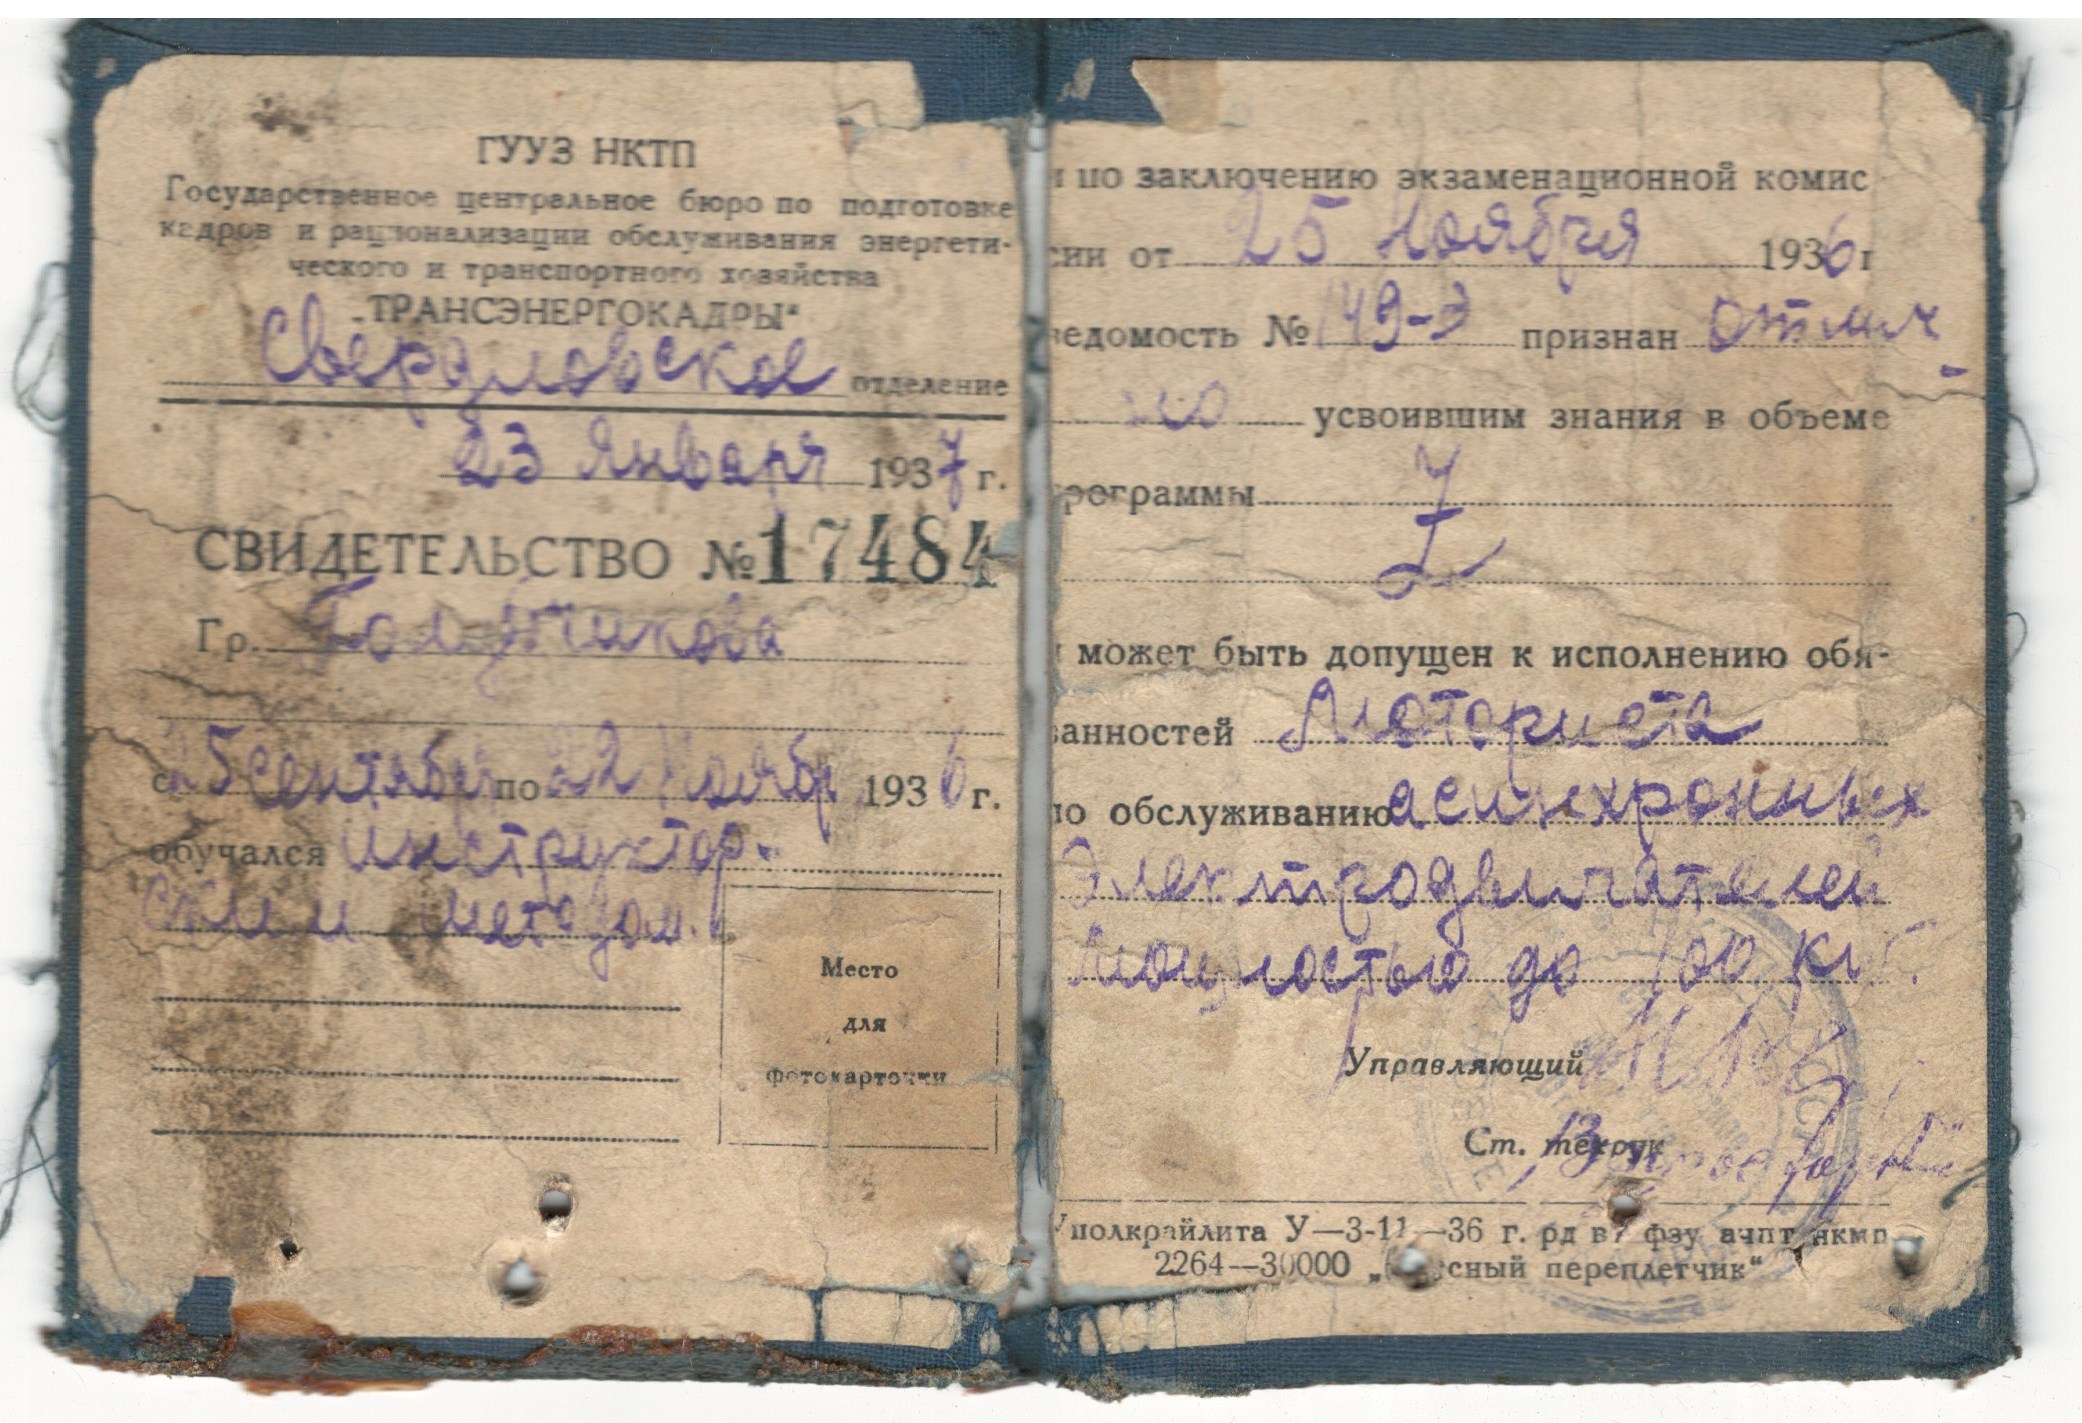 ГУУЗ НКТП
Государственное центральное бюро по подготовке
кадров и рационализации обслуживания энергети-
ческого и транспортного хозяйства
„ТРАНСЭНЕРГОКАДРЫ“
Свердловское отделение
23 Января 1937 г.
СВИДЕТЕЛЬСТВО №17484
Гр.
с 25 сентября по 22 Ноябр 1936 г.
обучался инструктор-
ским методом.
Место
для
фотокарточки
и по заключению экзаменационной комис
сии от 25 Ноября 1936 г
ведомость № 149-Э признан отлич-
но усвоившим знания в объеме
программы
и может быть допущен к исполнению обя-
занностей Моториста
по обслуживанию асинхронных
Электродвигателей
мощностью до 100 кв.
Управляющий
Ст. техрук
Уполкрайлита У—3-11—36 г. рд в7 фзу ачпт нкмп
2264—30000 переплетчик“